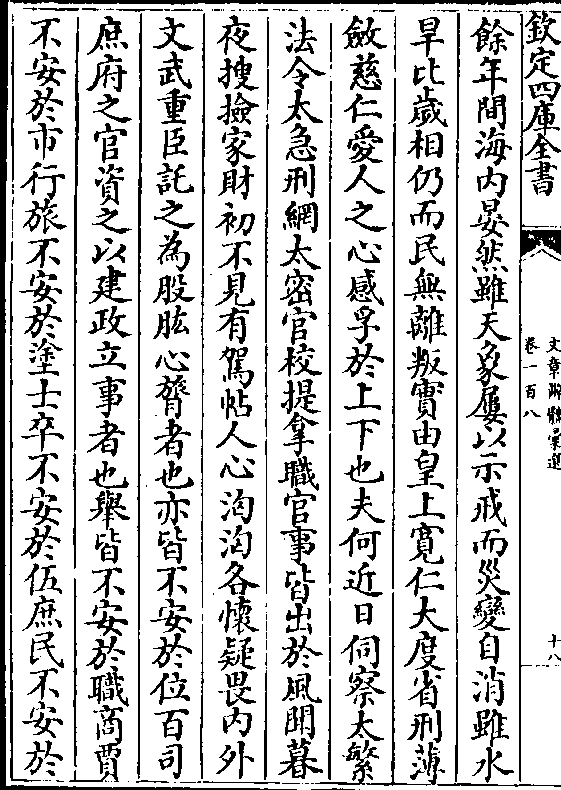 欽定四庫全書
文章辨體彙選
卷一百八
十八
餘年間海内晏然雖天象屢以示戒而災變自消雖水
旱比歲相仍而民無離叛實由皇上寛仁大度省刑薄
斂慈仁愛人之心感孚於上下也夫何近日伺察太繁
法令太急刑網太密官校提拿職官事皆出於風聞暮
夜搜撿家財初不見有駕帖人心洶洶各懷疑畏内外
文武重臣託之為股肱心膂者也亦皆不安於位百司
庶府之官資之以建政立事者也舉皆不安於職商賈
不安於市行旅不安於塗士卒不安於伍庶民不安於